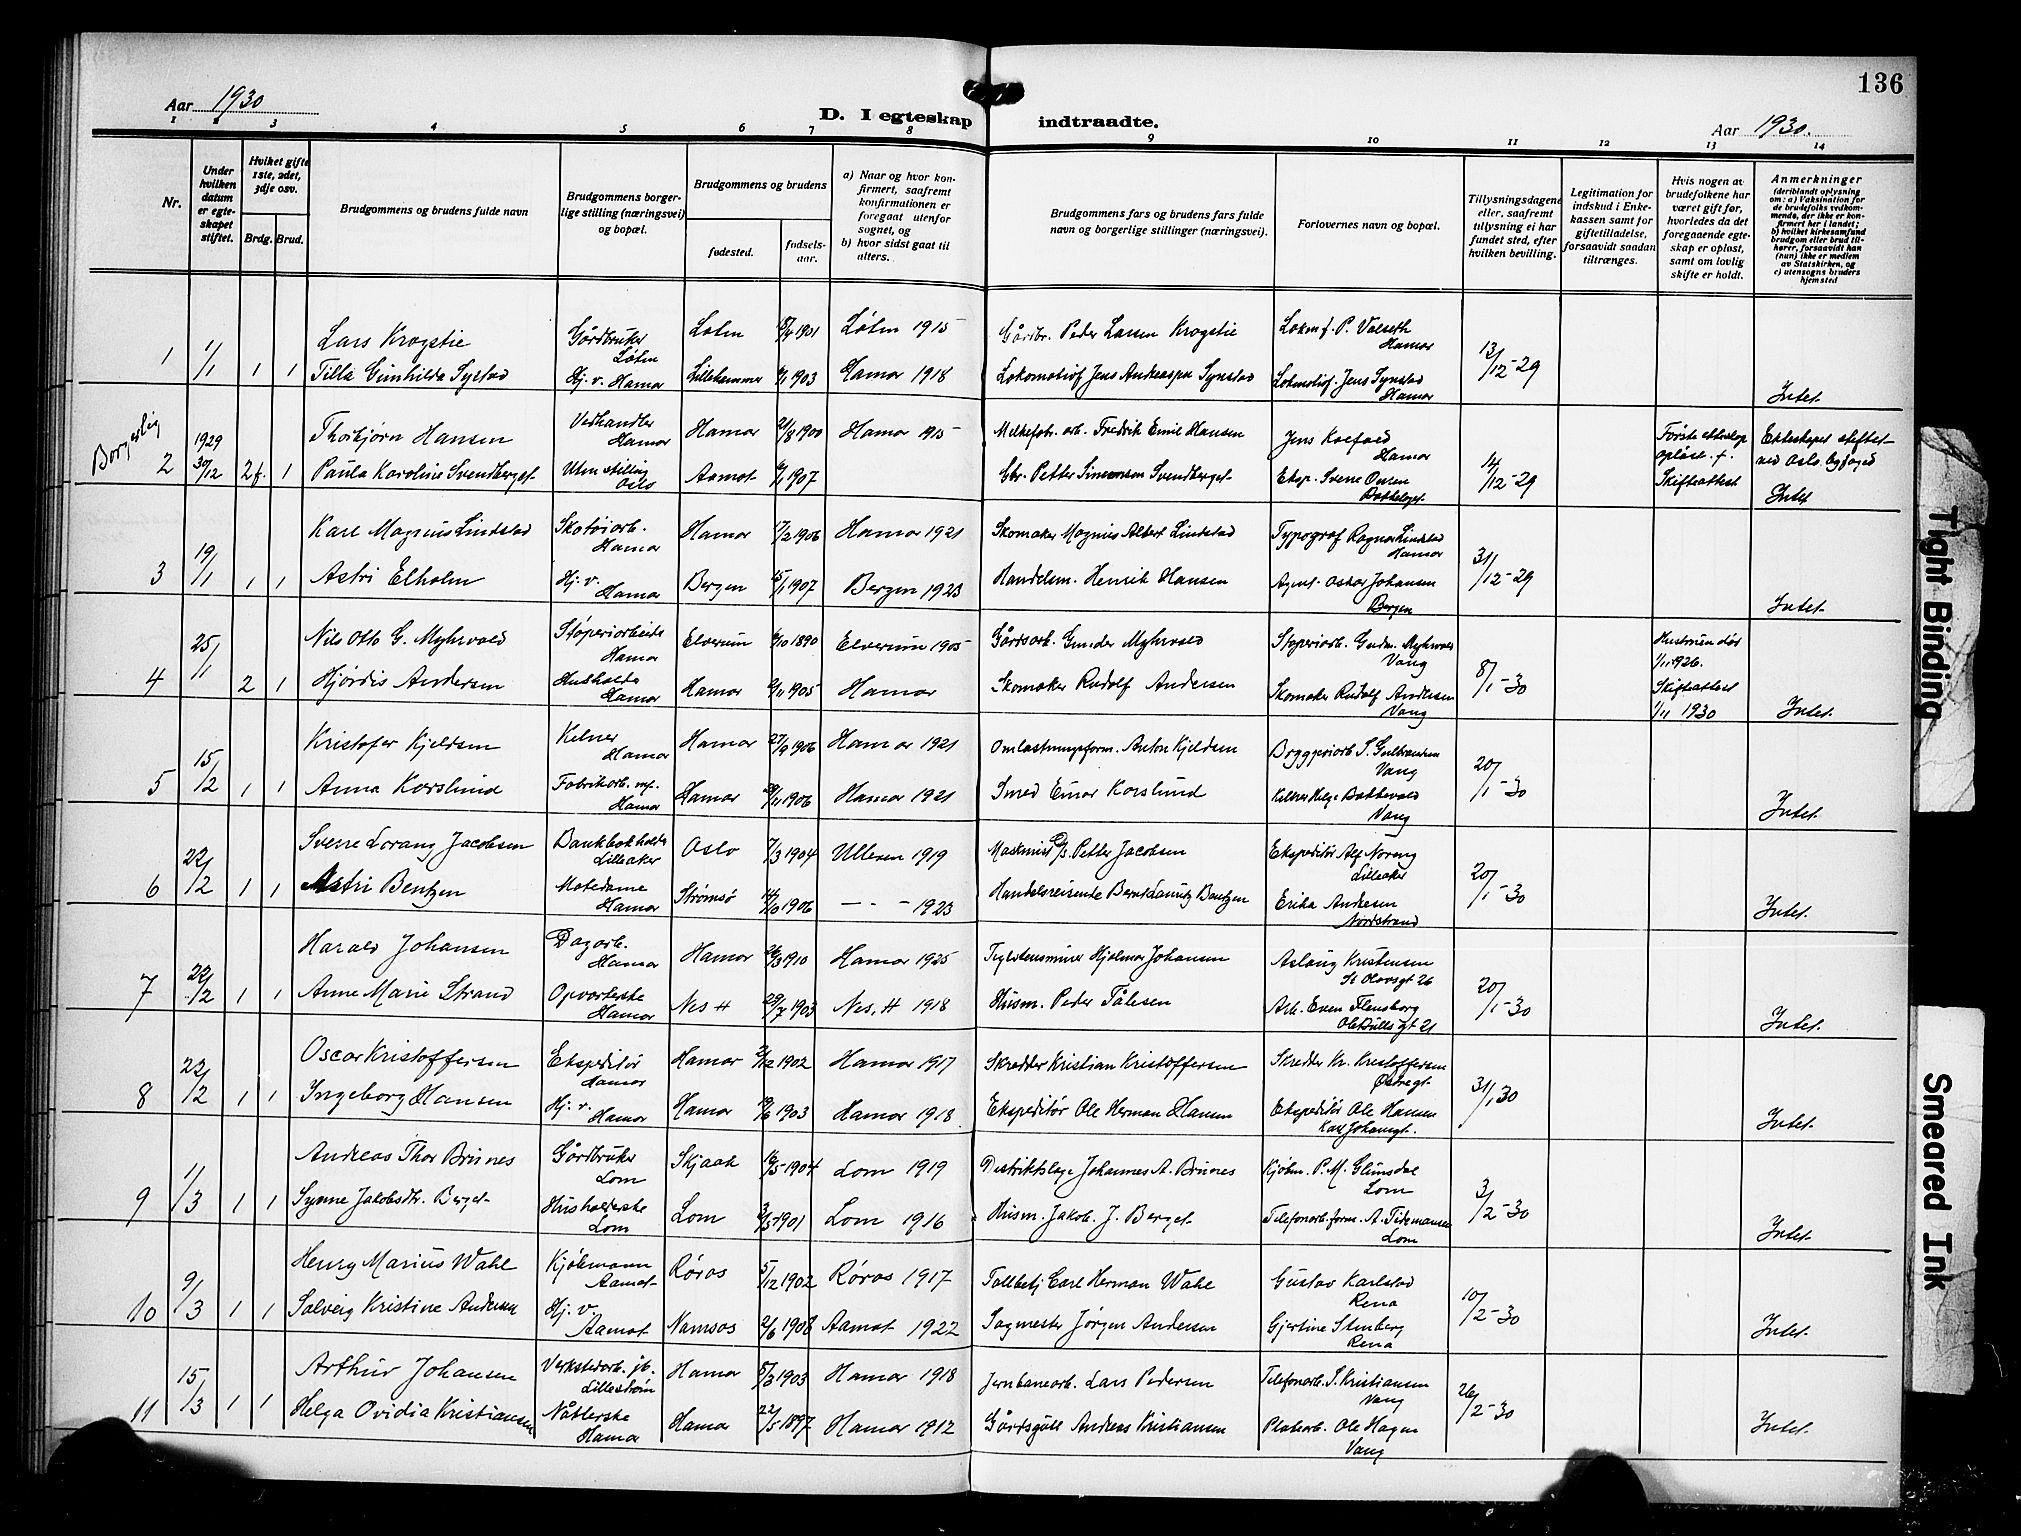 136
Aar 1930
D. I egteskap indtraadte.
Aar 1930.
1 2 3 4 5 6 7 8 9 10 11 12 13 14
Nr.
Under hvilken datum er egteskapet stiftet.
Hviket gifte 1ste, 2det, 3dje osv.
Brdg. Brud.
Brudgommens og brudens fulde navn
Brudgommens borgerlige stilling (næringsvei) og bopæl.
Brudgommens og brudens
fødested.
fødselsaar.
a) Naar og hvor konfirmert, saafremt konfirmationen er foregaat utenfor sognet, og
b) hvor sidst gaat til alters.
Brudgommens fars og brudens fars fulde navn og borgerlige stillinger (næringsvei).
Forlovernes navn og bopæl.
Tillysningsdagene eller, saafremt tillysning ei har fundet sted, efter hvilken bevilling.
Legitimation for indskud i Enkekassen samt for giftetilladelse, forsaavidt saadan tiltrænges.
Hvis nogen av brudefolkene har været gift før, hvorledes da det foregaaende egteskap er opløst, samt om lovlig skifte er holdt.
Anmerkninger
(deriblandt oplysning om: a) Vaksination for de brudefolks vedkommende, der ikke er konfirmert her i landet; b) hvilket kirkesamfund brudgom eller brud tilhører, forsaavidt han (hun) ikke er medlem av Statskirken, og c) utensogns bruders hjemsted
1 1/1 1 1
Lars Krogstie Gårdbruker Løten Løten 1901 Løten 1915 Gårdbr. Peder Larsen Krogstie Lokm.f. P. Valseth Hamar
Tilla Gunhilda Synstad Hj. v. Hamar Lillehammer 1903 Hamar 1918 Lokomotivf Jens Andreas Synstad Lokmotivf. Jens Synstad Hamar 13/12-29 Intet.
Borgerlig
2 1929 30/12 2f. 1
Thorbjørn Hansen Vedhandler Hamar Hamar 1900 Hamar 1915 Melkefor. arb. Fredrik Emil Hansen Jens Koefoed Hamar
Paula Karoline Svendberget Uten stilling Oslo Aamot 1907 Petter Simensen Svendberget Eksp. Sverre 14/12-29
Første ekteskap opløst Skifteattest
Ekteskapet stiftet ved Oslo byfoged Intet
3 19/1 1 1
Karl Magnus Lindstad Skotøiarb. Hamar Hamar 17/2 1906 Hamar 1921 Skomaker Magnus Albert Lindstad Typograf Ragnar Lindstad Hamar
Astri Elholm Hj. v. Hamar Bergen 15/1 1907 Bergen 1923 Handelsm. Henrik Hansen Agent Oskar Johansen Bergen 31/12-29 Intet.
4 25/1 2 1
Nils Otto G. Myhrvold Støperiarbeide Hamar Elverum 1890 Elverum 1905 Gårdsarb. Gunder Myhrvold Støperiarb. Gudm. Myhrvold Vang
Hjørdis Andersen Husholds Hamar Hamar 1905 Hamar Skomaker Rudolf Andersen Skomaker Rudolf Andersen Vang 8/1-30
Hustruen død 1/11 1926. Skifteattest 1930 Intet.
5 15/2 1 1
Kristofer Kjeldsen Kelner Hamar Hamar 27/9 1906 Hamar 1921 Omlastningsform. Anton Kjeldsen Bryggeriarb. S. Gulbrandsen Vang
Anna Korslund Fabrikarb. Hamar Hamar 1906 Hamar 1921 Smed Einar Korslund Kelner Helge Bakkevold Vang 20/1-30 Intet.
6 22/2 1 1
Sverre Lorang Jacobsen Bankbokholder Lilleaker Oslo 7/3 1904 Ullern 1919 Maskinist Petter Jacobsen Ekspeditør Alf Noreng Lilleaker
Astri Bentzen Motedame Hamar Strømsø 14/10 1906 — - — 1923 Handelsreisende Bernt Lauritz Bentzen Erika Andresen Nordstrand 20/1-30 Intet.
7 22/2 1 1
Harald Johansen Dagarb. Hamar Hamar 26/3 1910 Hamar 1925 Teglstensmurer Hjalmar Johansen Aslaug Kristensen St Olavsgt 26
Anne Marie Strand Opvarterske Hamar Nes H 29/7 1903 Nes. H 1918 Husm. Peder Tålesen Arb. Even Flensborg Ole Bulls gt 21 20/1-30 Intet.
8 22/2 1 1
Oscar Kristoffersen Ekspeditør Hamar Hamar 3/12 1902 Hamar 1917 Skredder Kristian Kristoffersen Skredder Kr. Kristoffersen Østregt.
Ingeborg Hansen Hj. v. Hamar Hamar 19/6 1903 Hamar 1918 Ekspeditør Ole Herman Hansen Ekspeditør Ole Hansen Karl Johangt. 31/1 30 Intet.
9 1/3 1 1
Andreas Thor Brunes Gårdbruker Lom Skjaak 1904 Lom 1919 Distriktslæge Johannes A. Brunes Kjøbm. P. M. Glimsdal Lom
Synne Jakobsdtr. Berget Husholderske Lom Lom 1901 Lom 1916 Husm. Jakob. J. Berget Telefonarb.form. A. Tidemansen Lom 3/2-30 Intet.
10 9/3 1 1
Henry Marius Wahl Kjøbmann Aamot Røros 5/12 1902 Røros 1917 Tollbetj Carl Herman Wahl Gustav Karlstad Rena
Solveig Kristine Andersen Hj. v. Aamot Namsos 2/6 1908 Aamot 1922 Sagmester Jørgen Andersen Gjertine Stenberg Rena 10/2-30 Intet.
11 15/3 1 1
Arthur Johansen Verkstedarb. jb. Lillestrøm Hamar 1903 Hamar 1918 Jernbanearb. Lars Pedersen Telefonarb. S. Kristiansen Vang
Helga Ovidia Kristiansen Nåtlerske Hamar Hamar 22/5 1897 Hamar 1912 Gårdsgutt Andreas Kristiansen Platearb. Ole Hagen Vang 26/2-30 Intet.
Tight Binding
Smeared Ink